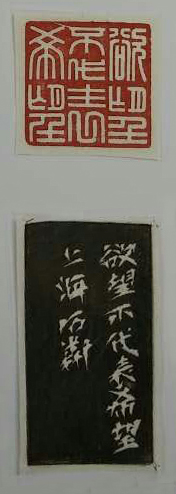 欲望
不代表
希望
欲望不代表希望
上海